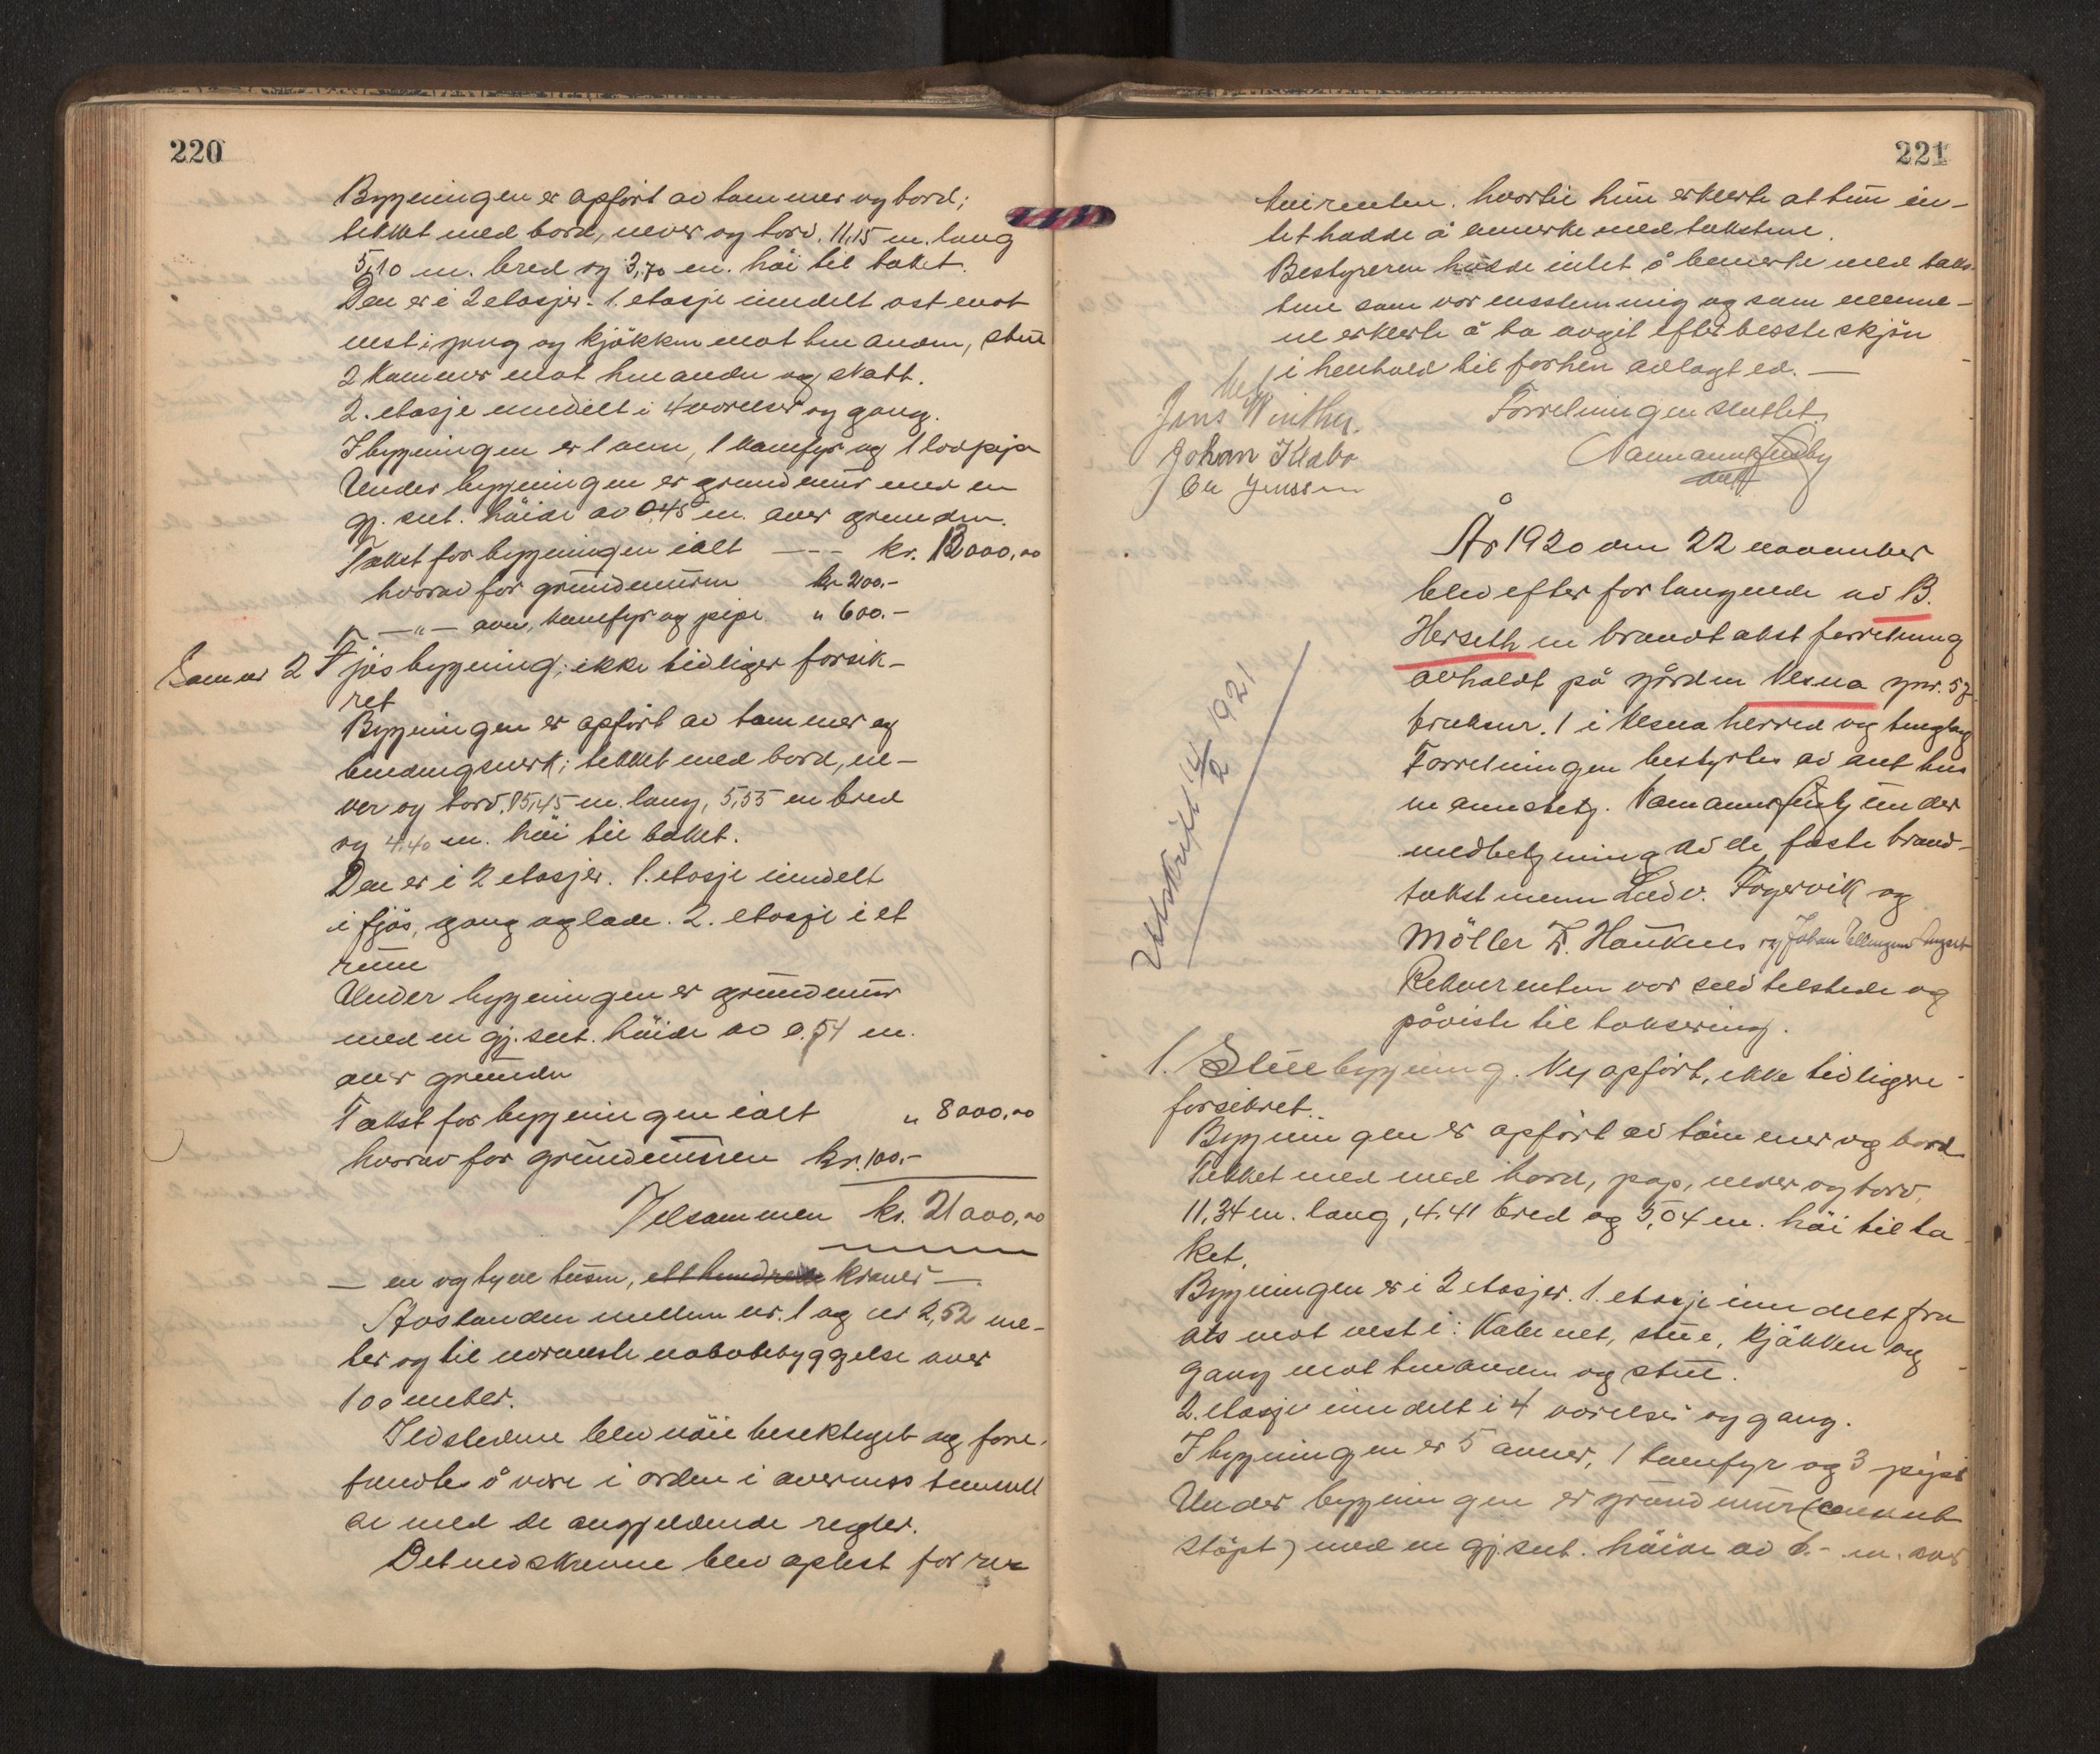 220
Bygningen er opført av tømmer og bord;
tækket med bord, never og torv. 11,15 m. lang
5,10 m. bred og 3,70 m. høi til taket.
Den er i 2 etasjer. 1. etasje inndelt øst mot
vest i gang og kjøkken mot hinanden, stue
2 kammer mot hinanden og skott.
2. etasje inndelt i 4 værelser og gang.
I bygningen er 1 ovn, 1 komfyr og 1 pipe
Under bygningen er grundmur med en
gj. snt. høide av 0,45 m. over grunden.
Takst for bygningen ialt --- kr. 13000,00
hvorav for grundmuren kr. 200.-
— " — ovn, komfyr og pipe " 600.-
Som nr 2 Fjøsbygning; ikke tidligere forsik-
ret
Bygningen er opført av tømmer og
bindingsverk; tækket med bord, ne-
ver og torv. 15,45 m. lang, 5,55 m bred
og 4.40 m. høi til taket.
Den er i 2 etasjer. 1. etasje inndelt
i fjøs, gang og lade. 2. etasje i et
rum
Under bygningen er grundmur
med en gj. snt. høide av 0.54 m.
over grunden
Takst for bygningen ialt " 8000,00
hvorav for grundmuren kr. 100.-
Tilsammen kr. 21000,00
— en og tyve tusen, ett hundrede kroner —
Avstanden mellem nr. 1 og nr 2, 52 me-
ter og til nærmeste nabobebyggelse over
100 meter.
Ildstedene blev nøie besiktiget og fore-
fandtes å være i orden i overensstemmel
se med de angjeldende regler.
Det nedskrevne blev oplest for re-
221
kvirenten. hvortil hun erklærte at hun in-
tet hadde å bemerke med takstene.
Bestyreren hadde intet å bemerke med taks-
tene som var enstemmig og som menne-
ne erklærte å ha avgit efter beste skjøn
i henhold til forhen avlagt ed. —
Forretningen sluttet.
Jens Winther.
Johan Klabo
Ole Jenssen
År 1920 den 22 november
blev efter forlangende av B.
Herseth en brandtakstforretning
avholdt på gården Vesna gnr. 57
bruksnr. 1 i Vesna herred og tinglag
Forretningen bestyrtes av aut lens
mannsbetj. under
medbetjening av de faste brand-
takstmenn Ludv. Fagervik og
Möller Z. Hauknes og Johan Ellingsen
Rekvirenten var selv tilstede og
påviste til taksering.
Utskrift 14/2 1921
1. Stuebygning. Ny opført, ikke tidligere
forsikret.
Bygningen er opført av tømmer og bord
Tækket med med bord, pap, never og torv.
11,34 m. lang, 4.41 bred og 5,04 m. høi til ta-
ket.
Bygningen er i 2 etasjer. 1. etasje inndelt fra
øst mot vest i: Kabinet, stue, kjøkken og
gang mot hinanden og stue.
2. etasje inndelt i 4 værelser og gang.
I bygningen er 5 ovner, 1 komfyr og 3 piper
Under bygningen er grundmur (cement
støpt) med en gj. snt. høide av 1.- m. over